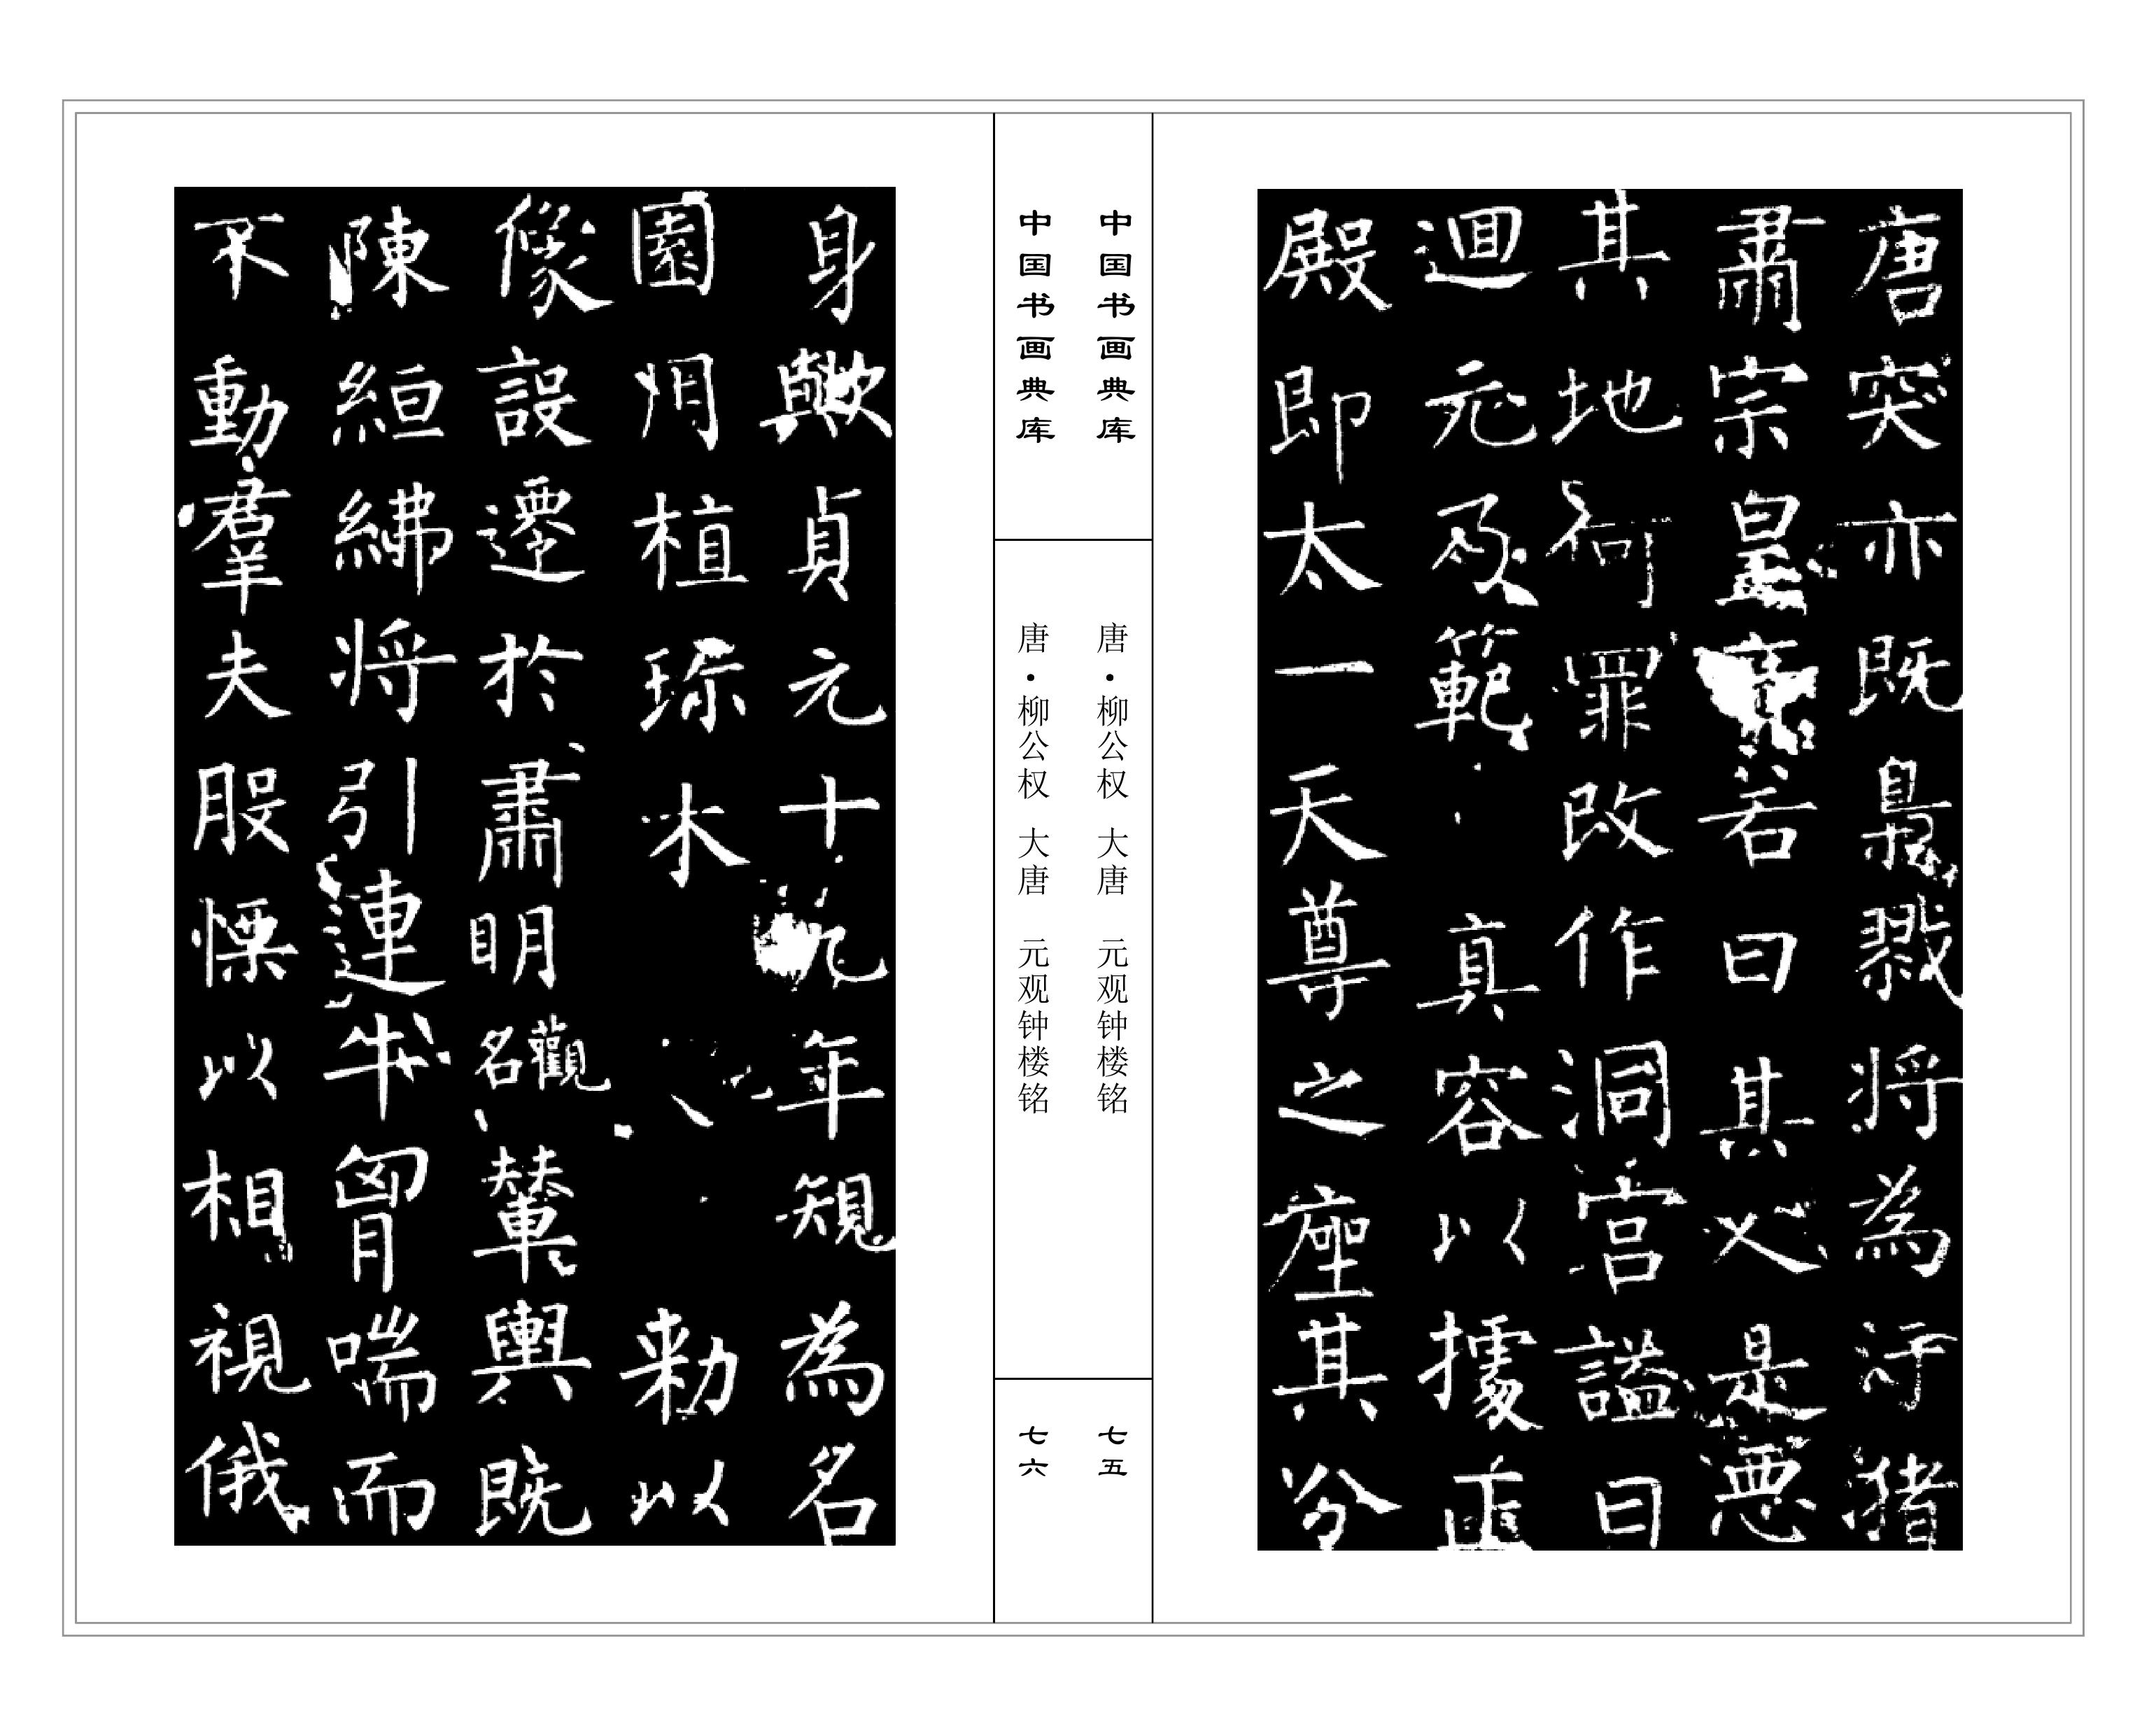 唐突亦既梟戮将為汙猪
肅宗皇帝若曰其父是悪
其地何罪改作洞宮謚曰
迴元乃範真容以據正
殿即太一天尊之座其分
中国书画典库
唐·柳公权 大唐 元观钟楼铭
七五
中国书画典库
唐·柳公权 大唐 元观钟楼铭
七六
身歟貞元十九年規為名
園用植珎木敕以
像設遷於肅明觀名輦輿既
陳絙紼将引連牛胷喘而
不動羣夫股慄以相視俄